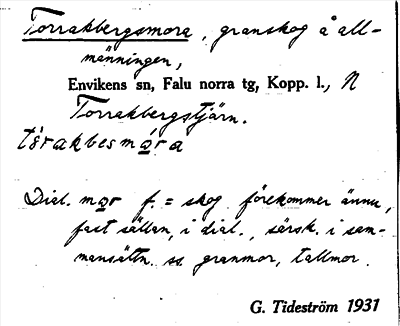 Torrakbergsmora, granskog å all-
männingen,
Envikens sn, Falu norra tg, Kopp. l., N
Torrakbergstjärn.
tòrakbesmọra
Dial. mọr f. = skog förekommer ännu,
fast sällan, i dial., särsk. i sam-
mansättn. ss granmor, tallmor.
G. Tideström 1931